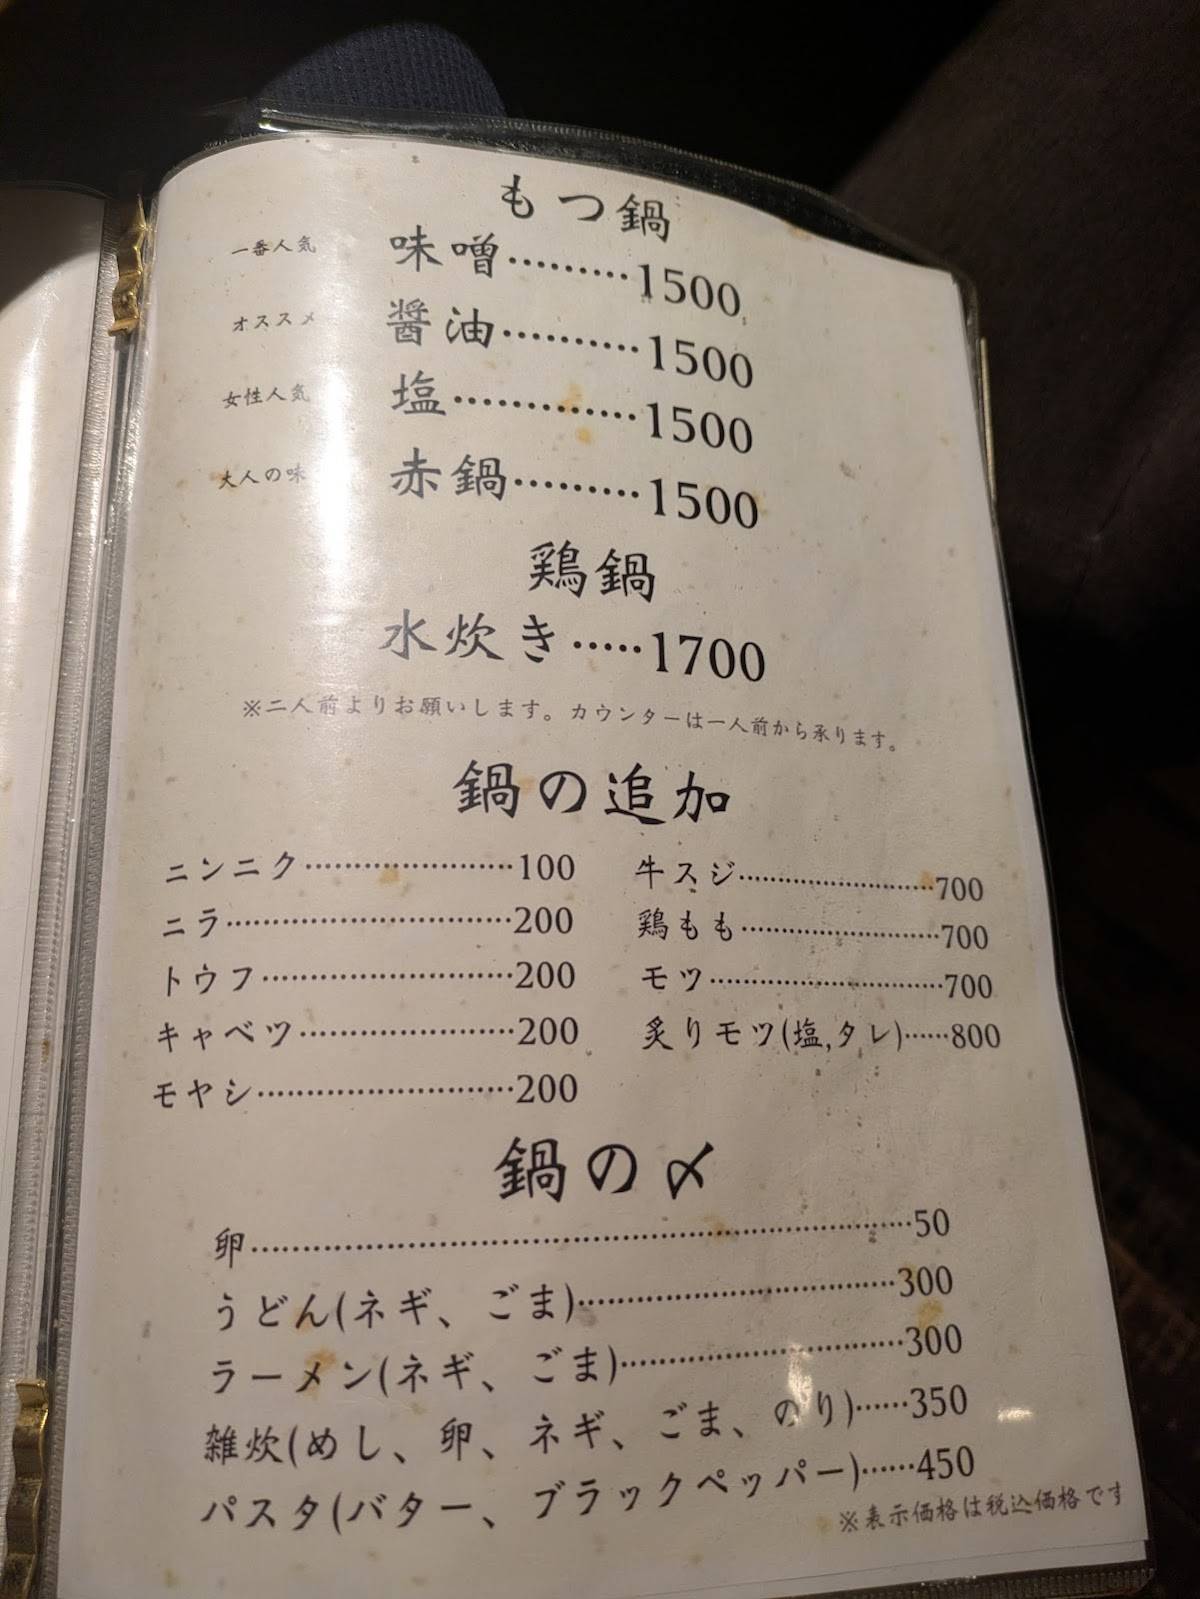 もつ鍋
一番人気 味噌………1500
オススメ 醤油………1500
女性人気 塩…………1500
大人の味 赤鍋………1500
鶏鍋
水炊き……1700
※二人前よりお願いします。カウンターは一人前から承ります。
鍋の追加
ニンニク……………………100
ニラ…………………………200
トウフ………………………200
キャベツ……………………200
モヤシ………………………200
牛スジ………………………700
鶏もも………………………700
モツ…………………………700
炙りモツ(塩,タレ)……800
鍋の〆
卵……………………………………………50
うどん(ネギ、ごま)……………………300
ラーメン(ネギ、ごま)…………………300
雑炊(めし、卵、ネギ、ごま、のり)……350
パスタ(バター、ブラックペッパー)……450
※表示価格は税込価格です